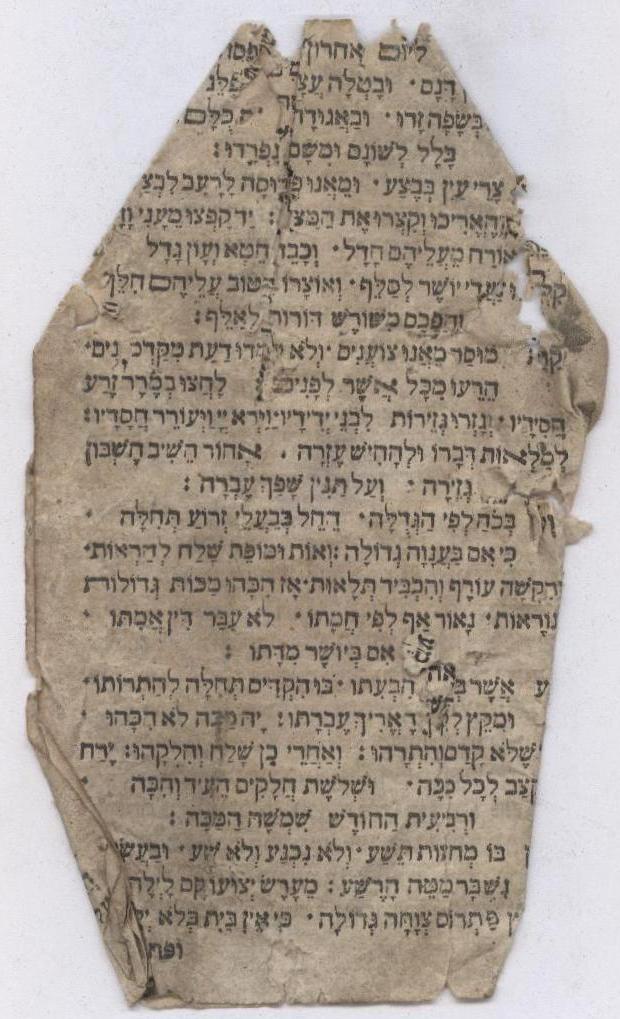 לְיוֹם אַחֲרוֹן
דָּנָם · וּבָטְלָה
כְּשָׂפָה זָדוּ · וּבַאֲגוּדָה כֻּלָּם
בָּלַל לְשׁוֹנָם וּמִשָּׁם נִפְרָדוּ :
צָרֵי עַיִן בְּבֶצַע · וּמֵאֲנוּ פְּרוּסָה לָרָעֵב לִבְצֹ
הֶאֱרִיכוּ וְקִצְּרוּ אֶת הַמַּצָּ : יַד קָפְצוּ מֵעָנִי
אוֹרַח מֵעֲלֵיהֶם חָדַל · וְכָבַד חֵטְא וְעָוֹן גָּדַל
יוֹשֶׁר לְסַלֵּף · וְאוֹצָרוֹ הַטּוֹב עֲלֵיהֶם חִלֵּף
וַהֲפָכָם מִשּׁוֹרֶשׁ דּוֹרוֹת לְאַלֵּף :
מוּסָר מֵאֲנוּ צוֹעֲנִים · וְלֹא לָמְדוּ דַעַת מִקַּדְמֹנִים ·
הֵרֵעוּ מִכָּל אֲשֶׁר לְפָנִים : לָחֲצוּ בְּמָרָר זֶרַע
חֲסִידָיו · וְגָזְרוּ גְּזֵירוֹת לִבְנֵי יְדִידָיו · וַיַּרְא יְיָ וַיְּעוֹרֵר חֲסָדָיו :
לְמַלְּאוֹת דְּבָרוֹ וּלְהָחִישׁ עֶזְרָה . אָחוֹר הֵשִׁיב חֶשְׁבּוֹן
גְּזֵירָה · וְעַל תַּנִּין שָׁפַךְ עֶבְרָה :
בְּכֹחַ לְפִי הַגְּדֻלָּה · הֵחֵל בְּבַעֲלֵי זְרוֹעַ תְּחִלָּה ·
כִּי אִם בַּעֲנָוָה גְדוֹלָה : וְאוֹת וּמוֹפֵת שָׁלַח לְהַרְאוֹת ·
הִקְשָׁה עוֹרֶף וְהִכְבִּיד תְּלָאוֹת · אָז הִכָּהוּ מַכּוֹת גְּדוֹלוֹת
נוֹרָאוֹת · נָאוֹר אַף לְפִי חֲמָתוֹ · לֹא עָבַר דִּין אֲמִתּוֹ ·
אִם בְּיוֹשֶׁר מִדָּתוֹ :
אֲשֶׁר תְּבִעָתוֹ · בּוֹ הִקְדִּים תְּחִלָּה לְהַתְרוֹתוֹ ·
וּמִקֵּץ הֶאֱרִיךְ עֶבְרָתוֹ : יָהּ מַכָּה לֹא הִכָּהוּ
שֶׁלֹּא קִדֵּם וְהִתְרָהוּ : וְאַחֲרֵי כֵן שָׁלַח וְהִלְקָהוּ : יֶרַח
קָצַב לְכָל מַכָּה · וּשְׁלֹשֶׁת חֲלָקִים הֵעִיד וְחִכָּה ·
וּרְבִיעִית הַחוֹדֶשׁ שִׁמְּשָׁה הַמַּכָּה :
בּוֹ מַחֲזוֹת תֵּשַׁע · וְלֹא נִכְנַע וְלֹא שָׁע · וּבַעֲשִׂ
נִשְׁבַּר מַטֵּה הָרֶשַׁע : מֵעֶרֶשׂ יְצוּעוֹ קָם לַיְלָה
פַּתְרוֹס צְוָחָה גְדוֹלָה · כִּי אֵין בַּיִת בְּלֹא